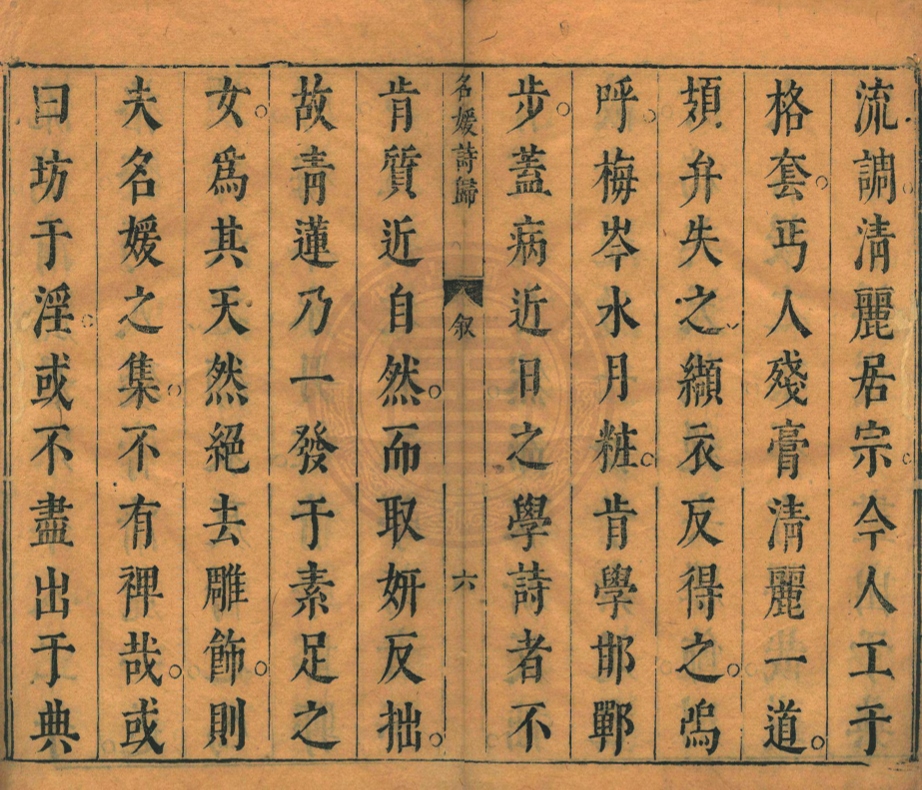 流調清麗居宗今人工于
格套丐人殘膏清麗一道
頍弁失之纈衣反得之嗚
呼梅岑水月粧肯學邯鄲
步蓋病近日之學詩者不
名媛詩歸
叙
六
肯質近自然而取妍反拙
故青蓮乃一發于素足之
女爲其天然絕去雕飾則
夫名媛之集不有裨哉或
曰坊于淫或不盡出于典